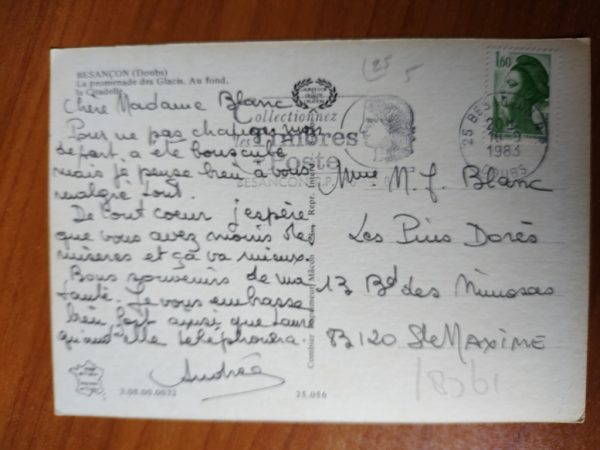 BESANÇON (Doubs)
La promenade des Glacis. Au fond,
la Citadelle
Chère Madame Blanc
Pour ne pas changer mon
départ a été bousculé
mais je pense bien à vous
malgré tout.
De tout coeur j'espère
que vous avez moins de
misères et ça va mieux.
Bons souvenirs de ma
tante. Je vous embrasse
bien fort ainsi que
quand elle téléphonera.
Andrée
3.00.00.0032
25.056
Combier Imprimeur Mâcon
25
5
Collectionnez
les Timbres
Poste
BESANÇON R.P.
1,60
25 BESANÇON
1983
DOUBS
Mme M. J. Blanc
Les Pins Dorés
13 Bd des Mimosas
83120 Ste MAXIME